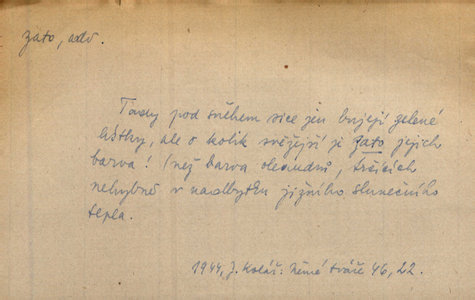 zato, adv.
Tady pod sněhem sice jen bují zelené
lístky, ale o kolik svěžejší je zato jejich
barva! (než barva oleandrů, trčících
nehybně v nadbytku jižního slunečního
tepla.
1944, J. Kolář: Němé tváře 46, 22.